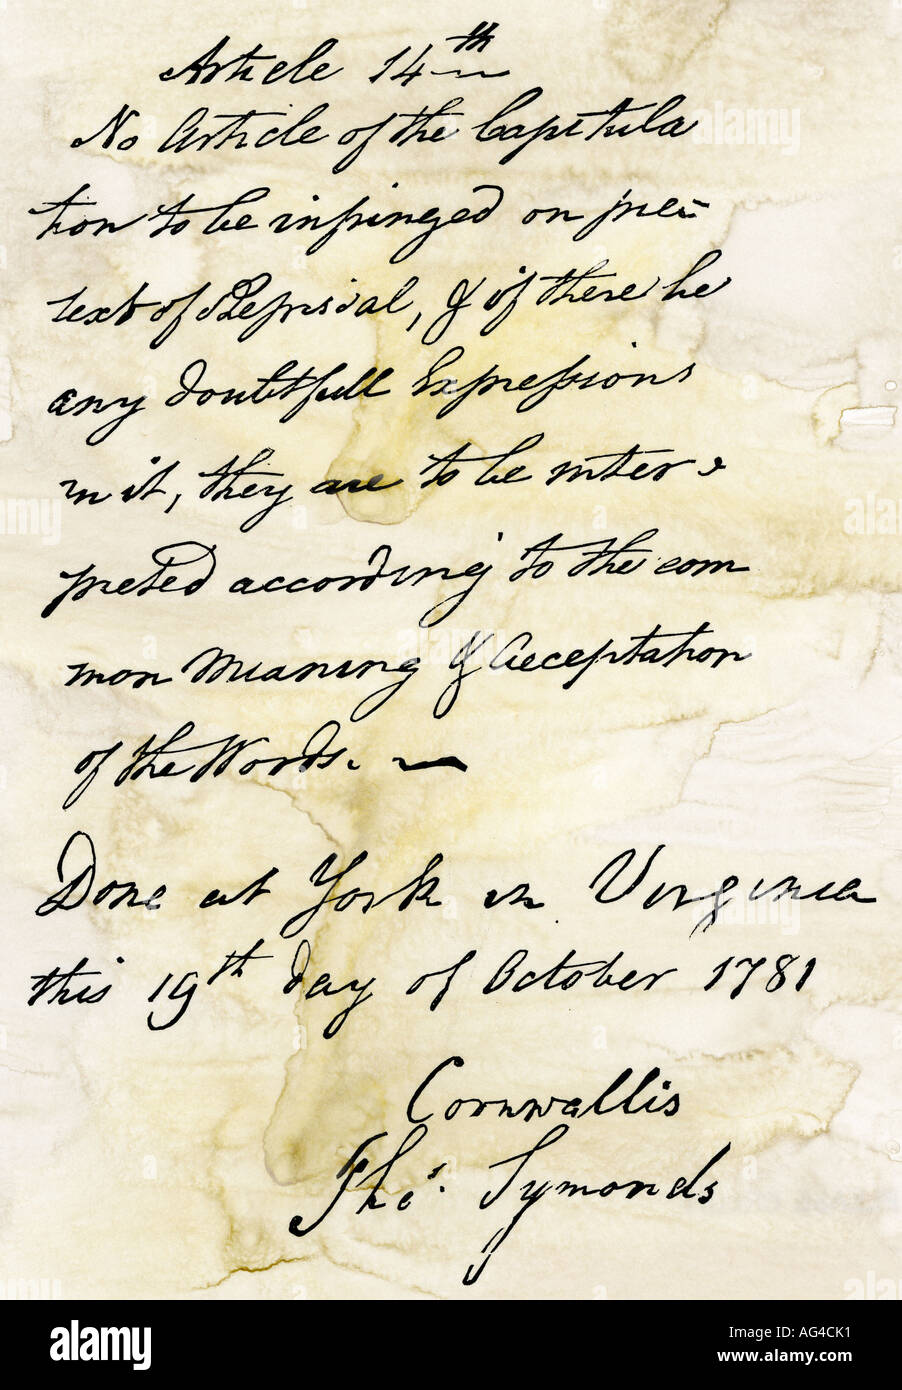 Article 14th
No Article of the Capitula
tion to be infringed on pre=
text of Reprisal, & if there be
any doubtfull Expressions
in it, they are to be inter =
preted according to the com
mon Meaning & Acceptation
of the Words. —
Done at York in Virginia
this 19th day of October 1781
Cornwallis
Thos. Symonds
alamy
Image ID: AG4CK1
www.alamy.com